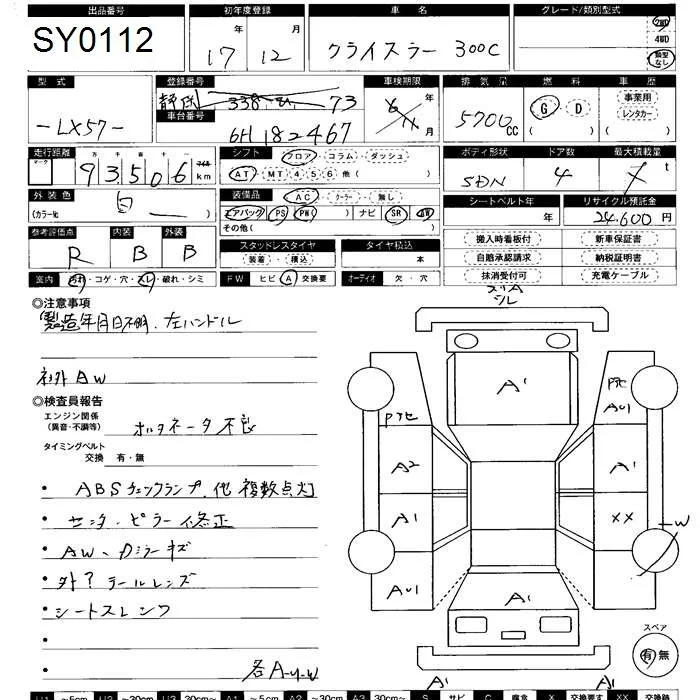 出品番号 初年度登録 車名 グレード/類別型式
SY0112 17年 12月 クライスラー 300C 2WD 4WD 類型なし
型式 登録番号 車検期限 排気量 燃料 車歴
-LX57- 73 年 月 5700cc G D ( ) 事業用 レンタカー ( )
車台番号 6H182467
走行距離 シフト フロア コラム ダッシュ ボディ形状 ドア数 最大積載量
マーク 万 千 百 十 マイル
93506km AT MT 4 5 6 他( ) SDN 4 t
外装色 装備品 AC クーラー 無し シートベルト年 リサイクル預託金
(カラー№ ) 白 エアバック PS PW ナビ SR AW 年 24,600円
その他( )
参考評価点 内装 外装 スタッドレスタイヤ タイヤ積込 搬入時看板付 新車保証書
R B B 装着 積込 本 自賠承認請求 納税証明書
室内 汚れ・コゲ・穴・スレ・破れ・シミ FW ヒビ A 交換要 オーディオ 欠・穴 抹消受付可 充電ケーブル
◎注意事項
製造年月日不明、左ハンドル
社外AW
◎検査員報告
エンジン関係
(異音・不調等) オルタネータ不良
タイミングベルト
交換 有・無
・ABSチェックランプ、他 複数点灯
・センターピラー修正
・AW、Dミラーキズ
・外?テールレンズ
・シートスレシワ
各A-U-W
A1
A2 A1
A1 XX
AU1 AU1
W
A1
A1 A1
スペア
有 無
U1 ~5cm U2 ~30cm U3 30cm~ A1 ~5cm A2 ~30cm A3 30cm~ S サビ C 腐食 X 交換要す XX 交換跡